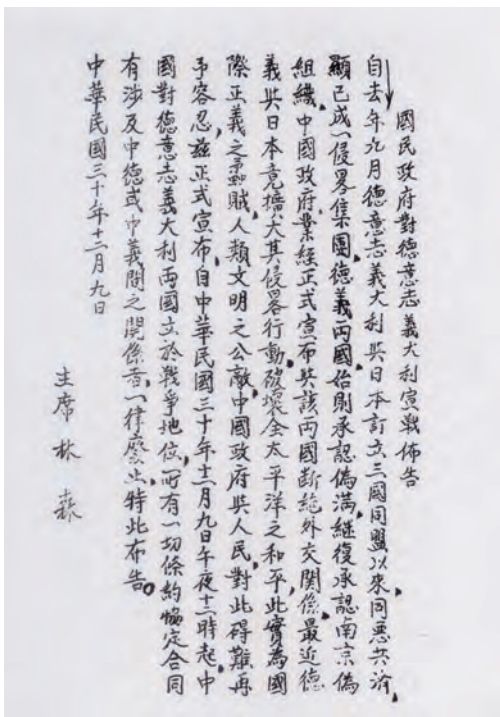 國民政府對德意志義大利宣戰佈告
自去年九月德意志義大利與日本訂立三國同盟以來,同惡共濟,
顯已成一侵畧集團,德義兩國,始則承認偽滿,繼復承認南京偽
組織,中國政府業經正式宣布與該兩國斷絕外交關係,最近德
義與日本竟擴大其侵畧行動,破壞全太平洋之和平,此實為國
際正義之蟊賊,人類文明之公敵,中國政府與人民,對此碍難再
予容忍,茲正式宣布,自中華民國三十年十二月九日午夜十二時起,中
國對德意志義大利兩國立於戰爭地位,所有一切條約協定合同
有涉及中德或中義間之關係者,一律廢止,特此布告。
中華民國三十年十二月九日
主席林森